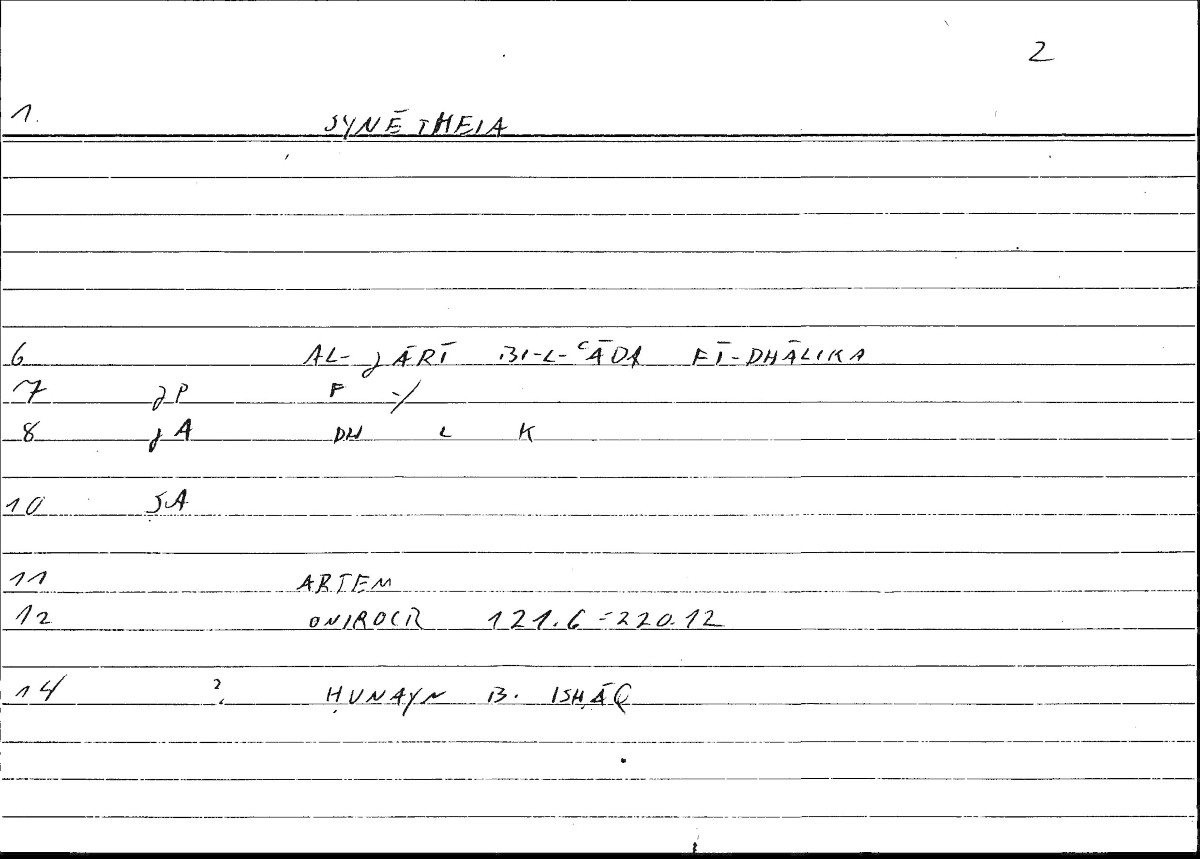 2
1. SYNĒTHEIA
6 AL-JĀRĪ BI-L-ʿĀDA FĪ-DHĀLIKA
7 JP F :/
8 JA DH L K
10 ṢA
11 ARTEM
12 ONIROCR 121.6=220.12
14 ?. ḤUNAYN B. ISḤĀQ